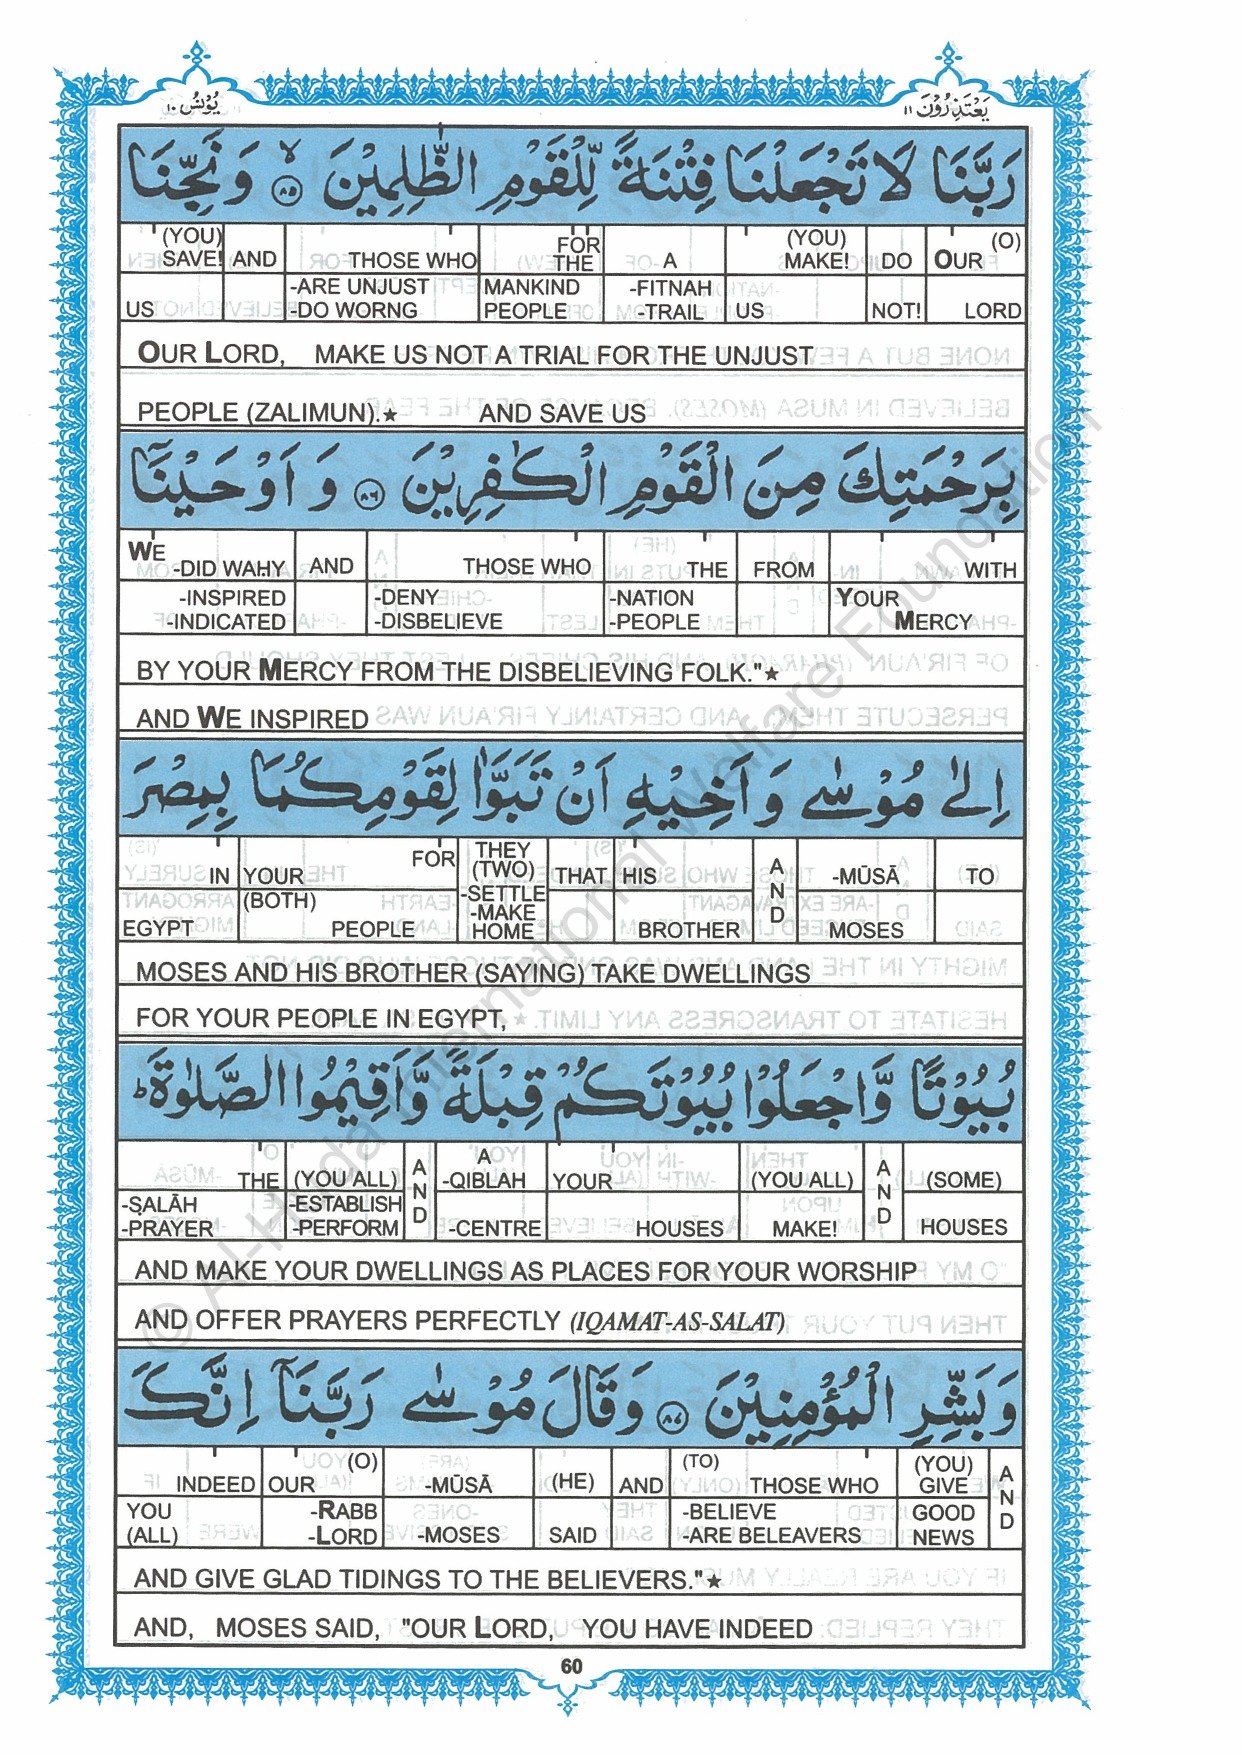 يَعْتَذِرُوْنَ ١١
يُوْنُسُ ١٠
رَبَّنَا لَا تَجْعَلْنَا فِتْنَةً لِّلْقَوْمِ الظّٰلِمِيْنَ ۙ ٨٥ وَ نَجِّنَا
(O) OUR LORD
DO NOT!
(YOU) MAKE! US
A -FITNAH -TRAIL
FOR THE MANKIND PEOPLE
THOSE WHO -ARE UNJUST -DO WORNG
AND
(YOU) SAVE! US
OUR LORD, MAKE US NOT A TRIAL FOR THE UNJUST
PEOPLE (ZALIMUN).★ AND SAVE US
بِرَحْمَتِكَ مِنَ الْقَوْمِ الْكٰفِرِيْنَ ٨٦ وَ اَوْحَيْنَآ
WITH YOUR MERCY
FROM
THE -NATION -PEOPLE
THOSE WHO -DENY -DISBELIEVE
AND
WE -DID WAḤY -INSPIRED -INDICATED
BY YOUR MERCY FROM THE DISBELIEVING FOLK."★
AND WE INSPIRED
اِلٰى مُوْسٰى وَ اَخِيْهِ اَنْ تَبَوَّاٰ لِقَوْمِكُمَا بِمِصْرَ
TO
-MŪSĀ MOSES
AND
HIS BROTHER
THAT
THEY (TWO) -SETTLE -MAKE HOME
FOR YOUR (BOTH) PEOPLE
IN EGYPT
MOSES AND HIS BROTHER (SAYING) TAKE DWELLINGS
FOR YOUR PEOPLE IN EGYPT,
بُيُوْتًا وَّ اجْعَلُوْا بُيُوْتَكُمْ قِبْلَةً وَّ اَقِيْمُوا الصَّلٰوةَ ؕ
(SOME) HOUSES
AND
(YOU ALL) MAKE!
YOUR HOUSES
A -QIBLAH -CENTRE
AND
(YOU ALL) -ESTABLISH -PERFORM
THE -ṢALĀH -PRAYER
AND MAKE YOUR DWELLINGS AS PLACES FOR YOUR WORSHIP
AND OFFER PRAYERS PERFECTLY (IQAMAT-AS-SALAT)
وَ بَشِّرِ الْمُؤْمِنِيْنَ ٨٧ وَ قَالَ مُوْسٰى رَبَّنَآ اِنَّكَ
AND
(YOU) GIVE GOOD NEWS
(TO) THOSE WHO -BELIEVE -ARE BELEAVERS
AND
(HE) SAID
-MŪSĀ -MOSES
(O) OUR -RABB -LORD
INDEED YOU (ALL)
AND GIVE GLAD TIDINGS TO THE BELIEVERS."★
AND, MOSES SAID, "OUR LORD, YOU HAVE INDEED
60
© Al-Huda International Welfare Foundation